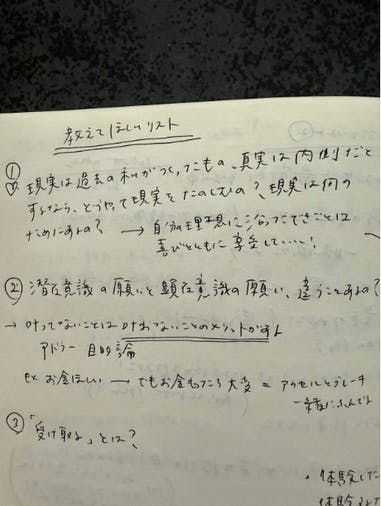 教えてほしいリスト
① 現実は過去の私がつくったもの、真実は内側だと
するなら、どうやって現実をたのしむの?現実は何の
ためにあるの? → 自分の理想に沿ったできごとは
喜びとともに享受していい!
② 潜在意識の願いと顕在意識の願い、違うことあるの?
→ 叶ってないことは叶わないことのメリットがある
アドラー 目的論
ex お金ほしい → でもお金もったら大変 = アクセルとブレーキ
一緒にふんでる
③ 「受け取る」とは?
・体験した
体験